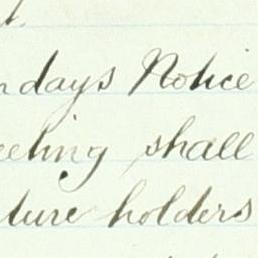 t.
n days Notice
eeting shall
ture holders